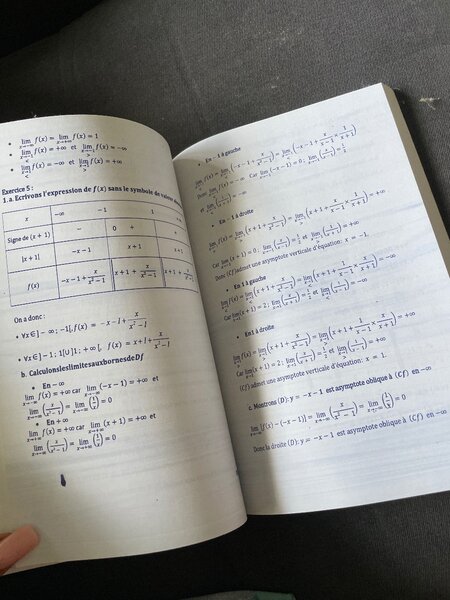 • lim x→−∞ f(x) = lim x→+∞ f(x) = 1
f(x) = +∞ et lim f(x) = −∞
f(x) = −∞ et lim f(x) = +∞
Exercice 5 :
1. a. Ecrivons l'expression de f(x) sans le symbole de valeur
x −∞ −1 1
Signe de (x + 1) − 0 +
|x+1| −x − 1 x + 1
f(x) −x − 1 + x/(x²−1) x + 1 + x/(x²−1) x + 1 + x/(x²−1)
On a donc :
• ∀x∈] − ∞ ; −1[, f(x) = −x − 1 + x/(x²−1)
• ∀x∈] − 1 ; 1[∪]1 ; +∞[, f(x) = x + 1 + x/(x²−1)
b. Calculonsleslimitesauxbornesde Df
• En −∞
lim x→−∞ f(x) = +∞ car lim x→−∞ (−x − 1) = +∞ et
lim x→−∞ (x/(x²−1)) = lim x→−∞ (1/x) = 0
• En +∞
lim x→+∞ f(x) = +∞ car lim x→+∞ (x + 1) = +∞ et
lim (x/(x²−1)) = lim (1/x) = 0
• En − 1 à gauche
lim f(x) = lim (−x − 1 + x/(x²−1)) = lim (−x − 1 + x/(x−1) × 1/(x+1))
Donc lim f(x) = −∞ Car lim(−x − 1) = 0 ; lim (x/(x−1)) = 1/2
et lim (1/(x+1)) = −∞
• En − 1 à droite
lim f(x) = lim (x + 1 + x/(x²−1)) = lim (x + 1 + x/(x−1) × 1/(x+1)) = +∞
Car lim(x + 1) = 0 ; lim (x/(x−1)) = 1/2 et lim (1/(x+1)) = +∞
Donc (Cf)admet une asymptote verticale d'équation: x = −1.
• En 1 à gauche
lim f(x) = lim (x + 1 + x/(x²−1)) = lim (x + 1 + x/(x−1) × 1/(x+1)) = −∞
Car lim(x + 1) = 2 ; lim (x/(x+1)) = 1/2 et lim (1/(x−1)) = −∞
• En 1 à droite
lim f(x) = lim (x + 1 + x/(x²−1)) = lim (x + 1 + x/(x−1) × 1/(x+1)) = +∞
Car lim(x + 1) = 2 ; lim (x/(x+1)) = 1/2 et lim (1/(x−1)) = +∞
(Cf)admet une asymptote verticale d'équation: x = 1.
c. Montrons (D): y = −x − 1 est asymptote oblique à (Cf) en −∞
lim x→−∞ [f(x) − (−x − 1)] = lim x→−∞ (x/(x²−1)) = lim x→−∞ (1/x) = 0
Donc la droite (D): y = −x − 1 est asymptote oblique à (Cf) en −∞